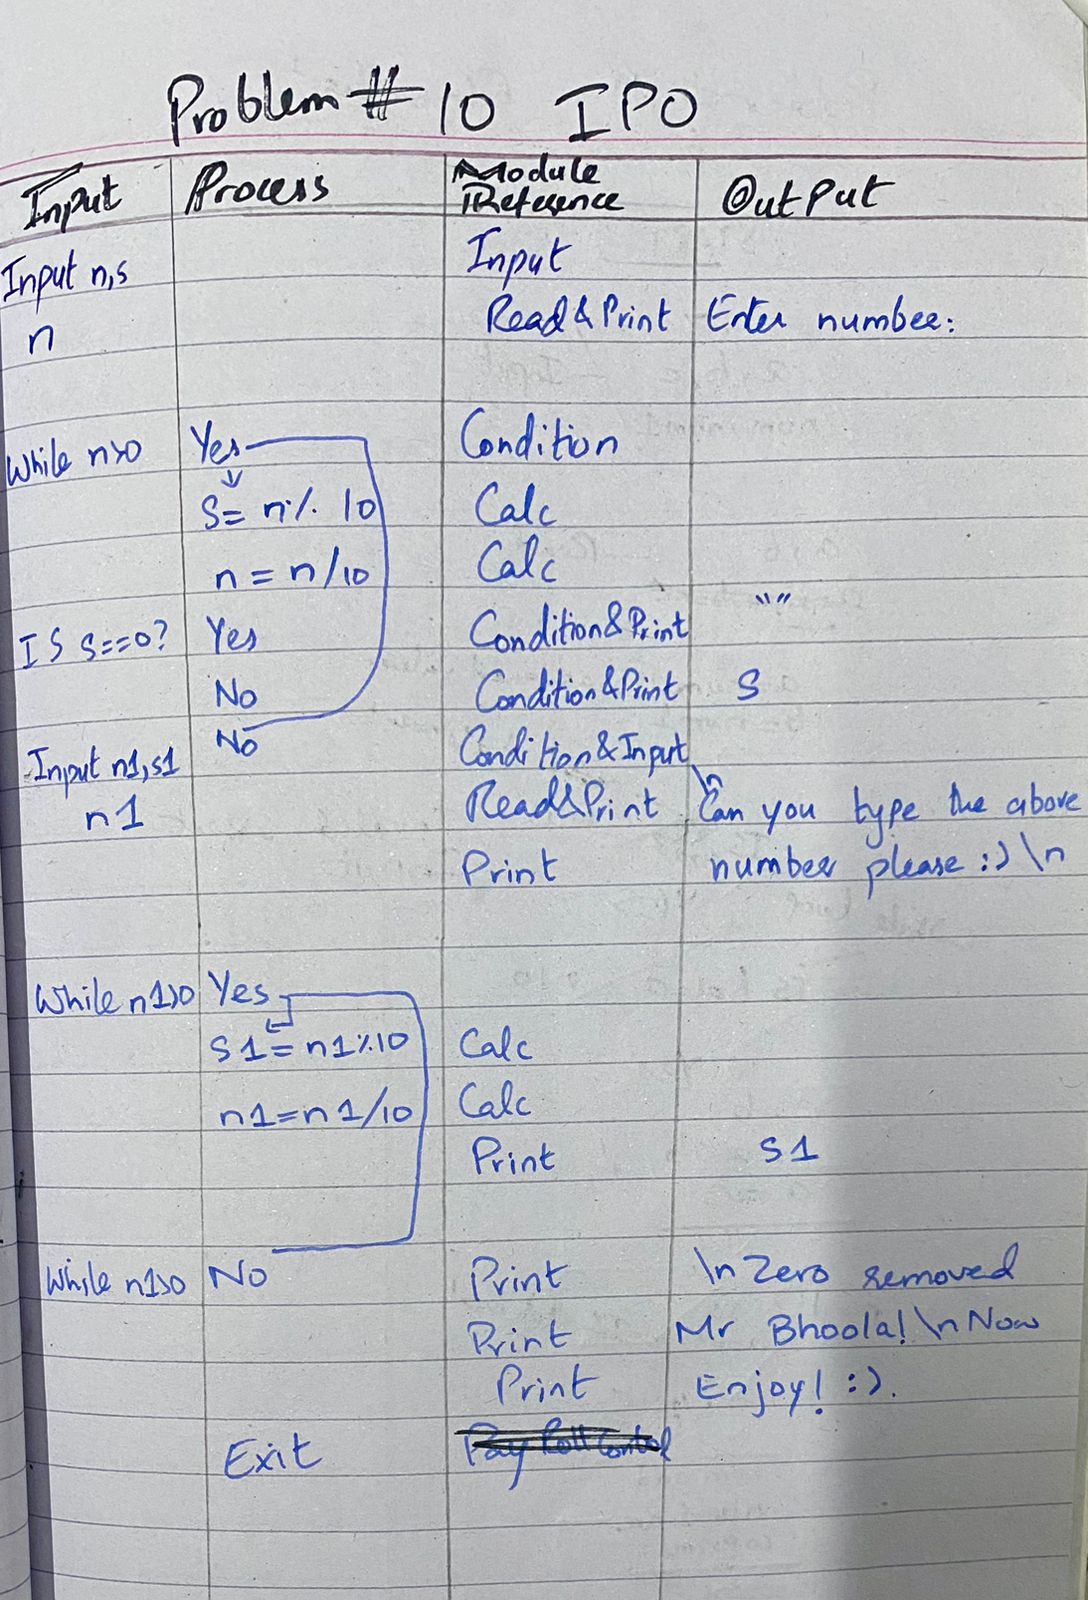 Problem # 10 IPO
Input Process Module Reference OutPut
Input n,s Input
n Read & Print Enter number:
While n>0 Yes Condition
S= n % 10 Calc
n = n/10 Calc
IS s==0? Yes Condition&Print " "
No Condition&Print S
No Condition&Input
Input n1,s1
n1 Read&Print \n Can you type the above
Print number please :) \n
While n1>0 Yes
s1=n1%10 Calc
n1=n1/10 Calc
Print s1
While n1>0 No Print \n Zero removed
Print Mr Bhoola! \n Now
Print Enjoy! :).
Exit